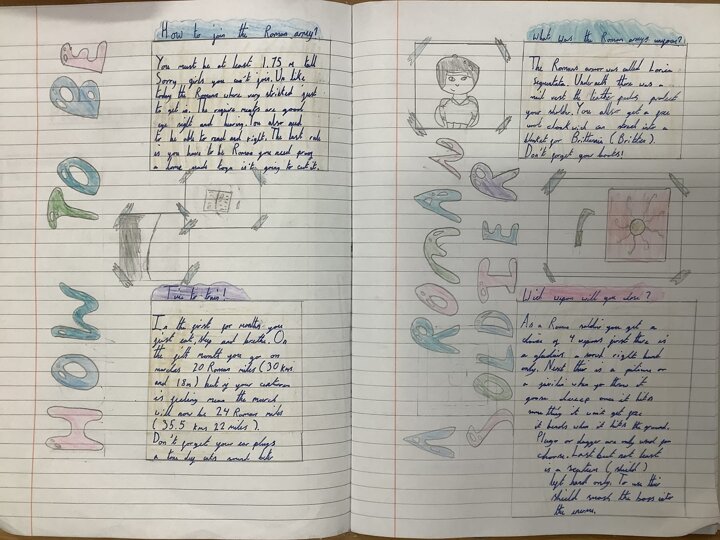 HOW TO BE
How to join the Roman army?
You must be at least 1.75 m tall
Sorry girls you can't join. Un like
today the Romans where very strict just
to get in. The require ments are good
eye sight and hearing. You also need
to be able to read and right. The last rule
is you have to be Roman you need proof
a home made toga isn't going to cut it.
Time to train!
In the first for months you
just eat, sleep and breathe. On
the fith month you go on
marches 20 Roman miles (30 kms
and 18m) but if your centurion
is feeling mean the march
will now be 24 Roman miles
(35.5 kms 22 miles).
Don't forget your ear plugs
a tone deaf
A ROMAN
SOLDIER
What was the Roman armys weapons?
The Romans armor was called Lorica
Segmentata. Underneath there was a
vest the leather pads protect
your sholder. You allso get a free
wool cloak wich can turn into a
blanket for Brittannia (Britten).
Don't forget your boots!
Wich wepon will you chose?
As a Roman soldier you get a
choice of 4 wepons first there is
a gladius a sword right hand
only. Next there is a pilum or
a javilin when you throw it
once it hits
some thing it wont get free
it bends when it hits the ground.
Plugo or dagger are only used you
choose. Last but not least
is a scutum (shield)
left hand only. To use this
shield smash the boss into
the enemie.